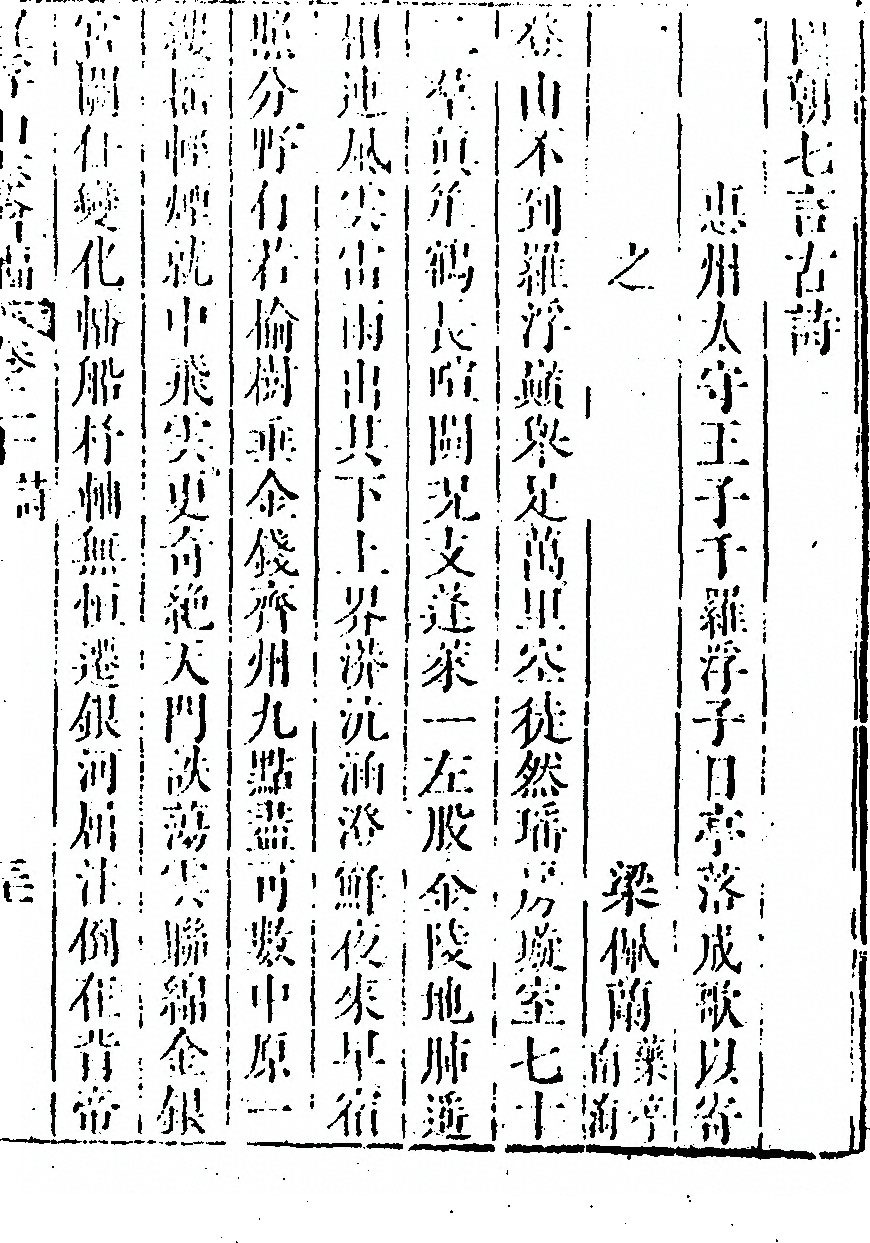 國朝七言古詩
惠州太守王子千羅浮子日亭落成歌以寄
之 梁佩蘭 藥亭 南海
登山不到羅浮巔舉足萬里空徒然瑤房璇室七十
二華眞笙鶴長喧闐況支蓬萊一左股金陵地肺遥
相連風雲雷雨出其下上界漭沆涵澄鮮夜來星宿
照分野有若榆樹垂金錢齊州九點盡可數中原一
線搖輕煙就中飛雲更奇絶天門詄蕩雲聯綿金銀
宮闕任變化幡船杼軸無恒遷銀河屈注倒在背帝
山 卷 詩